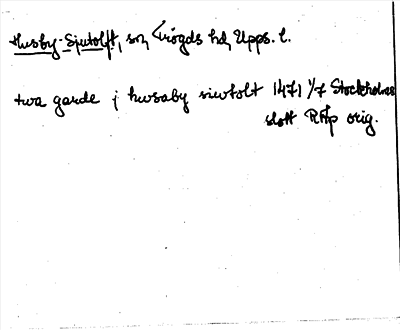 Husby-Sjutolft, sn, Lrögds hd, Upps. l.
twa garde j husaby siwtolt 1471 1/7 Stockholms
slott RAp orig.